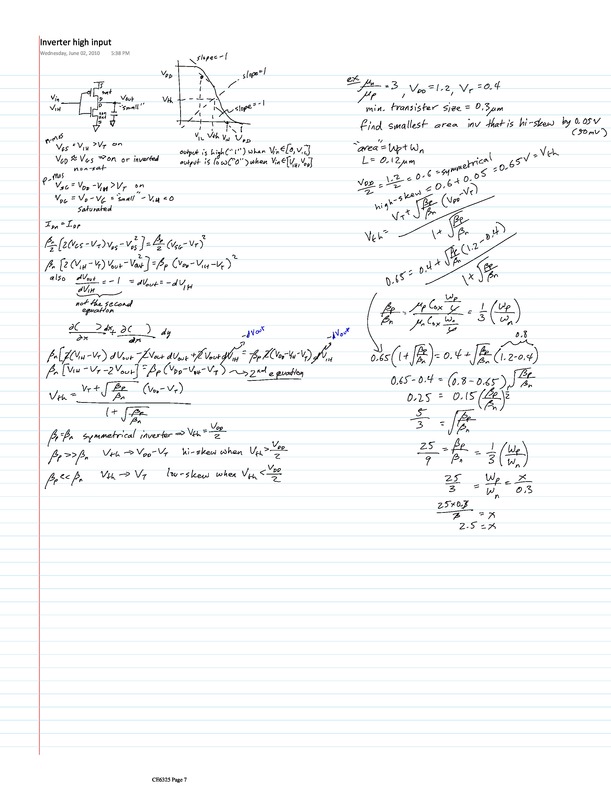 Inverter high input
Wednesday, June 02, 2010 5:38 PM
slope=-1
V_DD
slope=-1
V_th
slope=-1
V_IL V_th V_IH V_DD
V_in
V_IH
V_out
"small"
n-mos
V_GS = V_IH > V_T on
V_DD ≈ V_GS ⇒ on or inverted
non-sat
p-mos
V_SG = V_DD - V_IH > V_T on
V_DG = V_D - V_G = "small" - V_IH < 0
saturated
output is high("1") when V_in ∈ [0, V_IL]
output is low("0") when V_in ∈ [V_IH, V_DD]
I_Dn = I_DP
β_n/2 [2(V_GS - V_T)V_DS - V_DS²] = β_p/2 (V_SG - V_T)²
β_n [2(V_IH - V_T)V_out - V_out²] = β_p (V_DD - V_IH - V_T)²
also dV_out/dV_IH = -1 = dV_out = -dV_IH
not the second
equation
∂( )/∂x dx + ∂( )/∂x dy
-dV_out -dV_out
β_n [V_IH - V_T - 2V_out] = β_p (V_DD - V_out - V_T) → 2nd equation
V_th = (V_T + √(β_p/β_n) (V_DD - V_T)) / (1 + √(β_p/β_n))
β_p = β_n symmetrical inverter ⇒ V_th = V_DD/2
β_p >> β_n V_th → V_DD - V_T hi-skew when V_th > V_DD/2
β_p << β_n V_th → V_T low-skew when V_th < V_DD/2
ex μ_n/μ_p = 3, V_DD = 1.2, V_T = 0.4
min. transister size = 0.3μm
find smallest area inv that is hi-skew by 0.05V
(50mV)
"area" = W_p + W_n
L = 0.12μm
V_DD/2 = 1.2/2 = 0.6 = symmetrical
high-skew = 0.6 + 0.05 = 0.65V = V_th
V_th = (V_T + √(β_p/β_n) (V_DD - V_T)) / (1 + √(β_p/β_n))
0.65 = (0.4 + √(β_p/β_n) (1.2 - 0.4)) / (1 + √(β_p/β_n))
β_p/β_n = (μ_p C_ox W_p/L) / (μ_n C_ox W_n/L) = 1/3 (W_p/W_n)
0.8
0.65 (1 + √(β_p/β_n)) = 0.4 + √(β_p/β_n) (1.2 - 0.4)
0.65 - 0.4 = (0.8 - 0.65) √(β_p/β_n)
0.25 = 0.15 (β_p/β_n)^½
5/3 = √(β_p/β_n)
25/9 = β_p/β_n = 1/3 (W_p/W_n)
25/3 = W_p/W_n = x/0.3
25×0.3/3 = x
2.5 = x
CE6325 Page 7